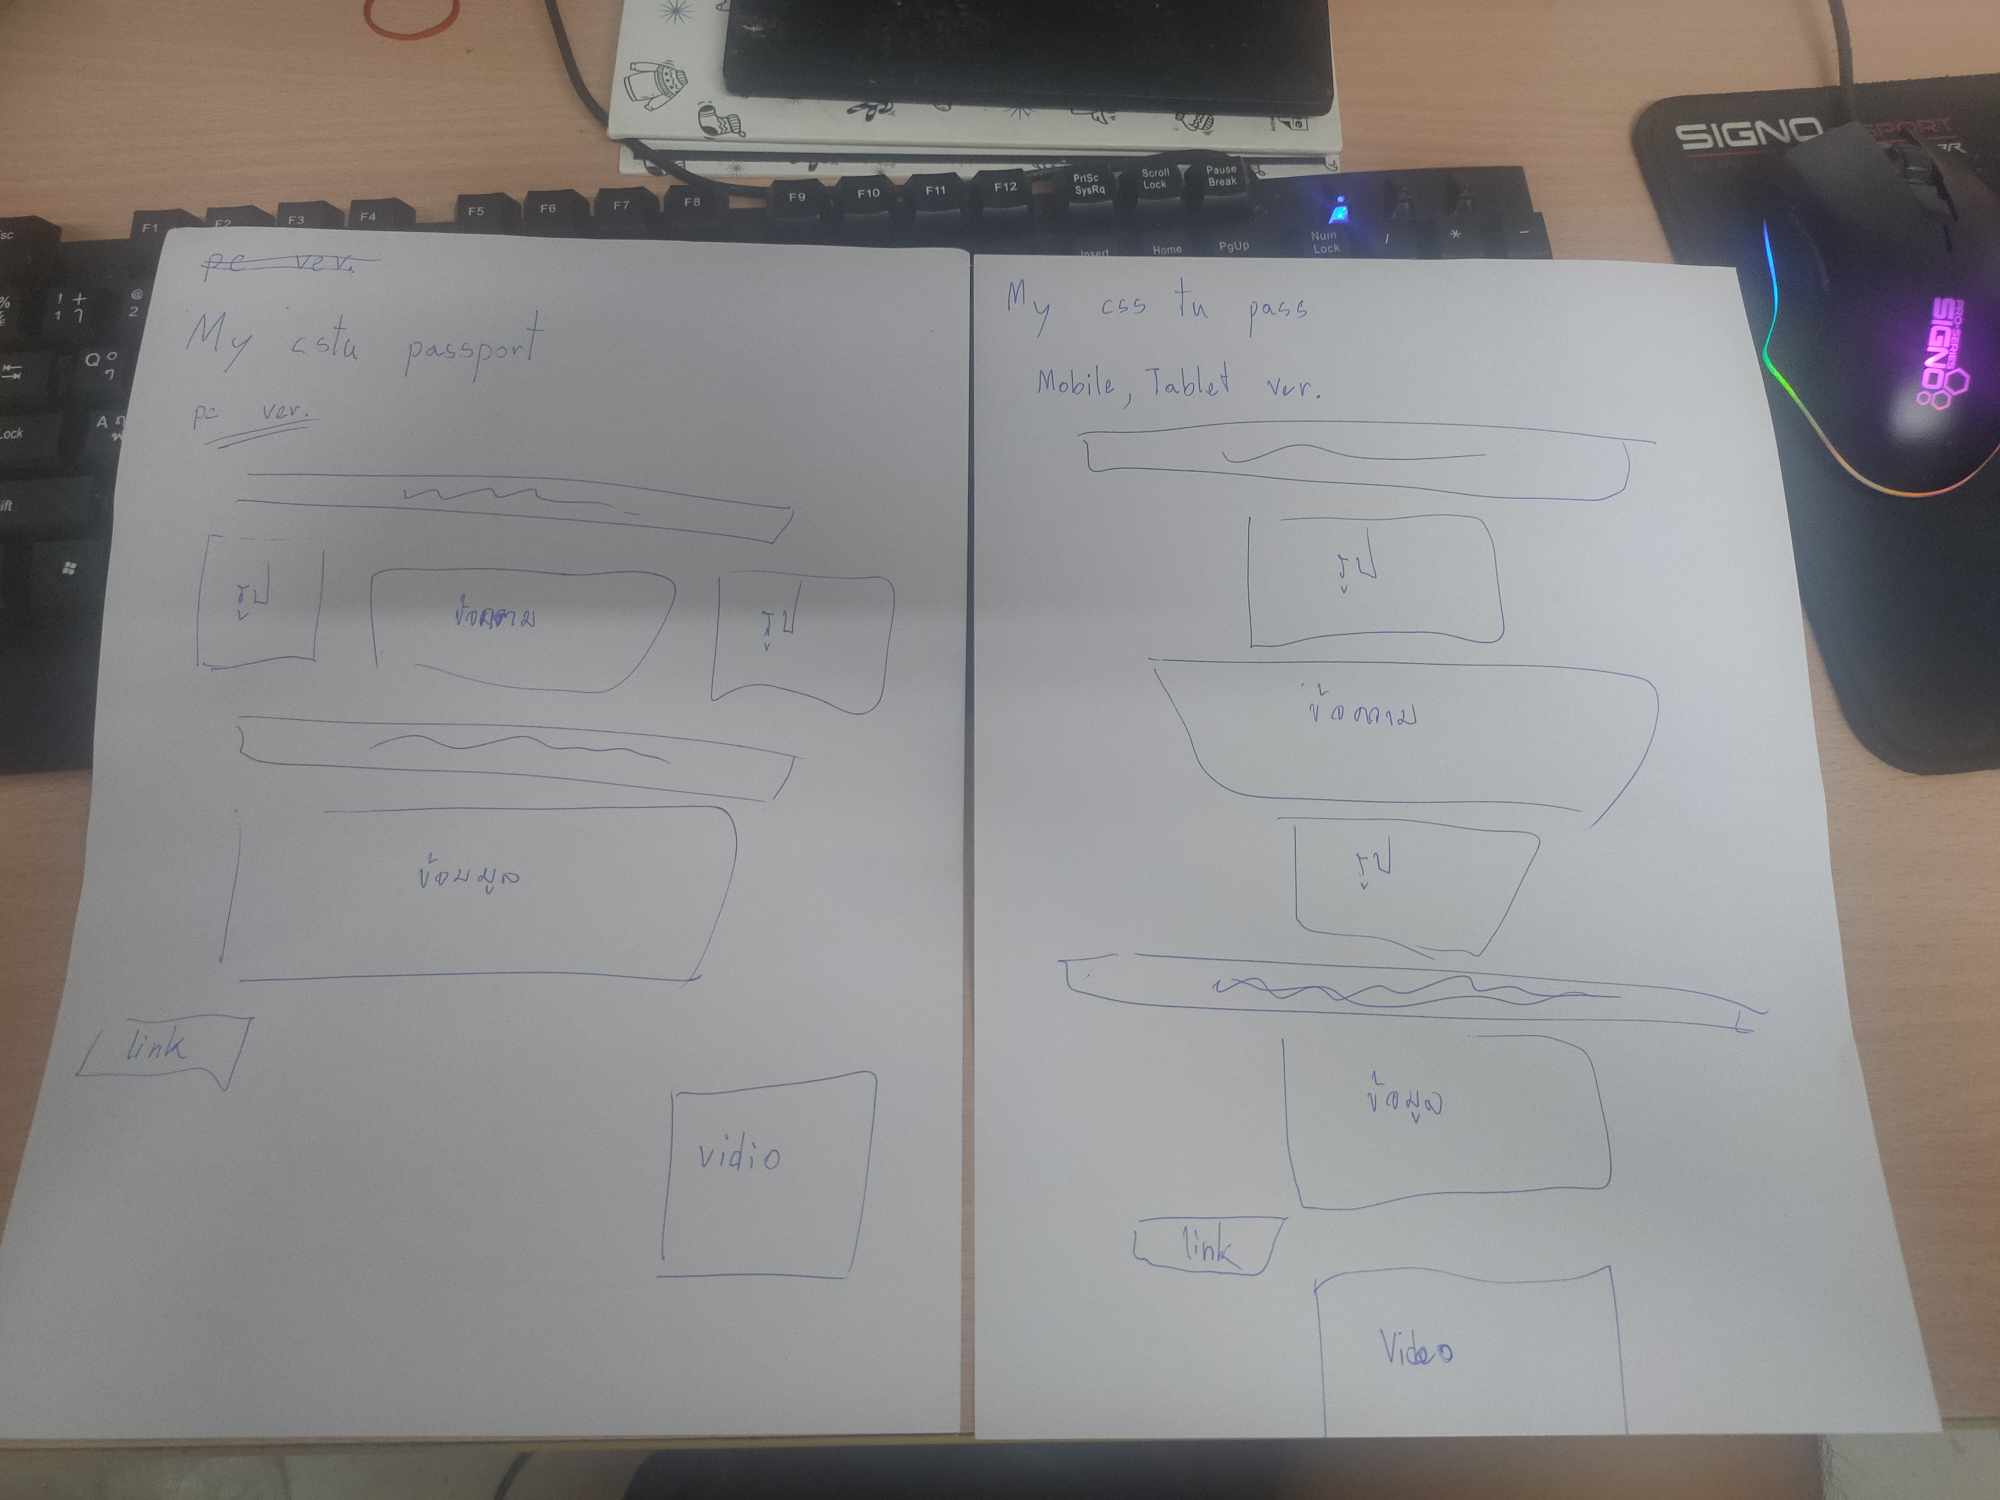 pc ver.
My cstu passport
pc ver.
รูป
ข้อความ
รูป
ข้อมมูล
link
vidio
My css tu pass
Mobile, Tablet ver.
รูป
ข้อความ
รูป
ข้อมูล
link
Video
SIGNO
SIGNO
PRO-SERIES
F1 F2 F3 F4 F5 F6 F7 F8 F9 F10 F11 F12
PrtSc SysRq
Scroll Lock
Pause Break
Insert Home PgUp
Num Lock
/ * -
Q
A
Lock